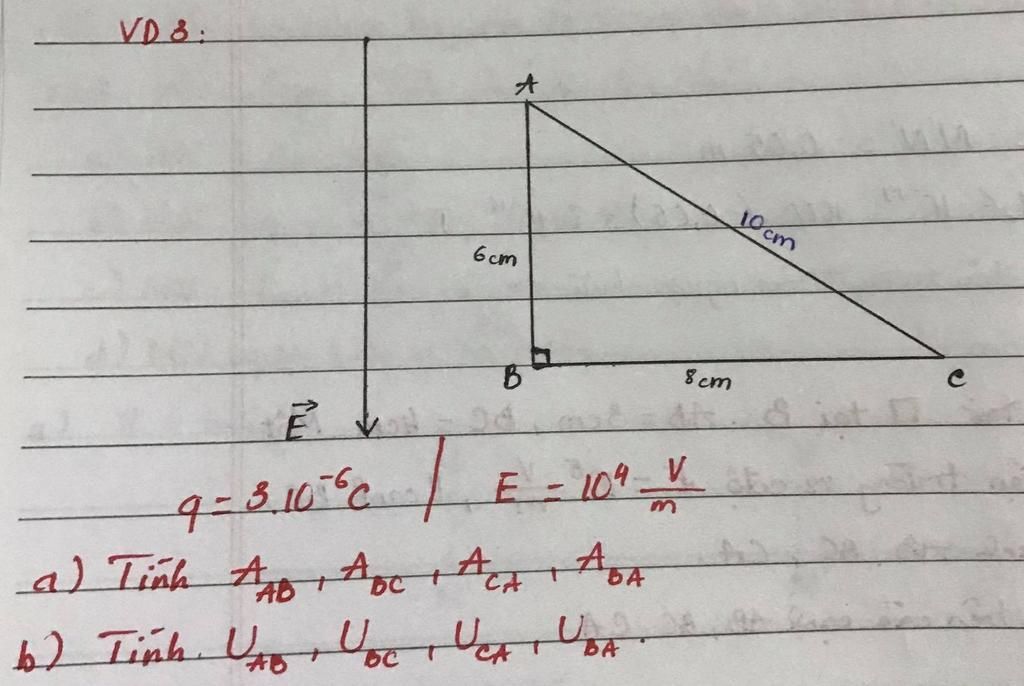 VD 3:
A
10cm
6cm
B
8cm
C
E⃗
q = 3.10⁻⁶C / E = 10⁴ V/m
a) Tính A_AB , A_BC , A_CA , A_BA
b) Tính. U_AB , U_BC , U_CA , U_BA .